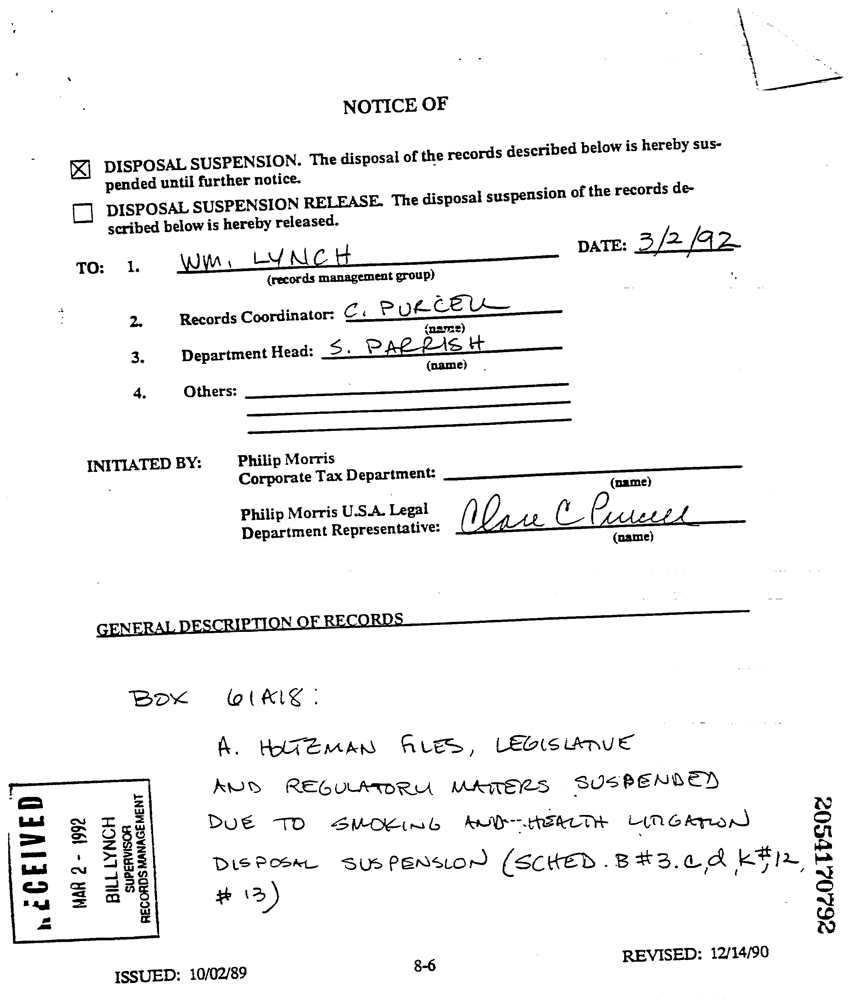 NOTICE OF
DISPOSAL SUSPENSION. The disposal of the records described below is hereby sus-
pended until further notice.
DISPOSAL SUSPENSION RELEASE. The disposal suspension of the records de-
scribed below is hereby released.
DATE: 3/2/92
TO: 1. WM. LYNCH
(records management group)
2. Records Coordinator: C. PURCELL
(name)
3. Department Head: S. PARRISH
(name)
4. Others:
INITIATED BY: Philip Morris
Corporate Tax Department:
(name)
Philip Morris U.S.A. Legal
Department Representative: Clare C Purcell
(name)
GENERAL DESCRIPTION OF RECORDS
BOX 61A18:
A. HOLTZMAN FILES, LEGISLATIVE
AND REGULATORY MATTERS SUSPENDED
DUE TO SMOKING AND HEALTH LITIGATION
DISPOSAL SUSPENSION (SCHED. B #3. c, d, K #12,
# 13)
RECEIVED
MAR 2 - 1992
BILL LYNCH
SUPERVISOR
RECORDS MANAGEMENT
2054170792
ISSUED: 10/02/89
8-6
REVISED: 12/14/90